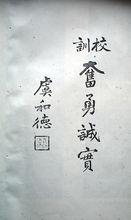 校訓
奮勇誠實
虞和德